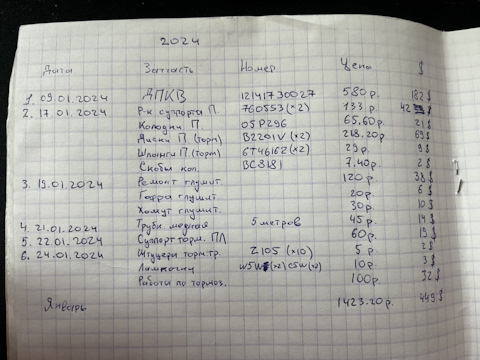 2024
Дата Запчасть Номер Цена $
1. 09.01.2024 ДПКВ 12141730027 580 р. 182 $
2. 17.01.2024 Р-к суппорта П. 760553 (x2) 133 р. 42 $
Колодки П. 05P296 65.60 р. 21 $
Диски П (торм) B2201V (x2) 218.20 р 69 $
Шланги П. (торм) 6T46162 (x2) 29 р. 9 $
Скобы кол. BC8181 7.40 р. 2 $
3. 19.01.2024 Ремонт глушит 120 р. 38 $
Гофра глушит 20 р. 6 $
Хомут глушит. 30 р. 10 $
4. 21.01.2024 Трубк. медная 5 метров 45 р. 14 $
5. 22.01.2024 Суппорт торм. ПЛ 60 р. 19 $
6. 24.01.2024 Штуцера торм.тр. Z105 (x10) 5 р. 2 $
Лампочки W5W (x2) C5W (x2) 10 р. 3 $
Работы по тормоз. 100 р. 32 $
Январь 1423.20 р. 449 $